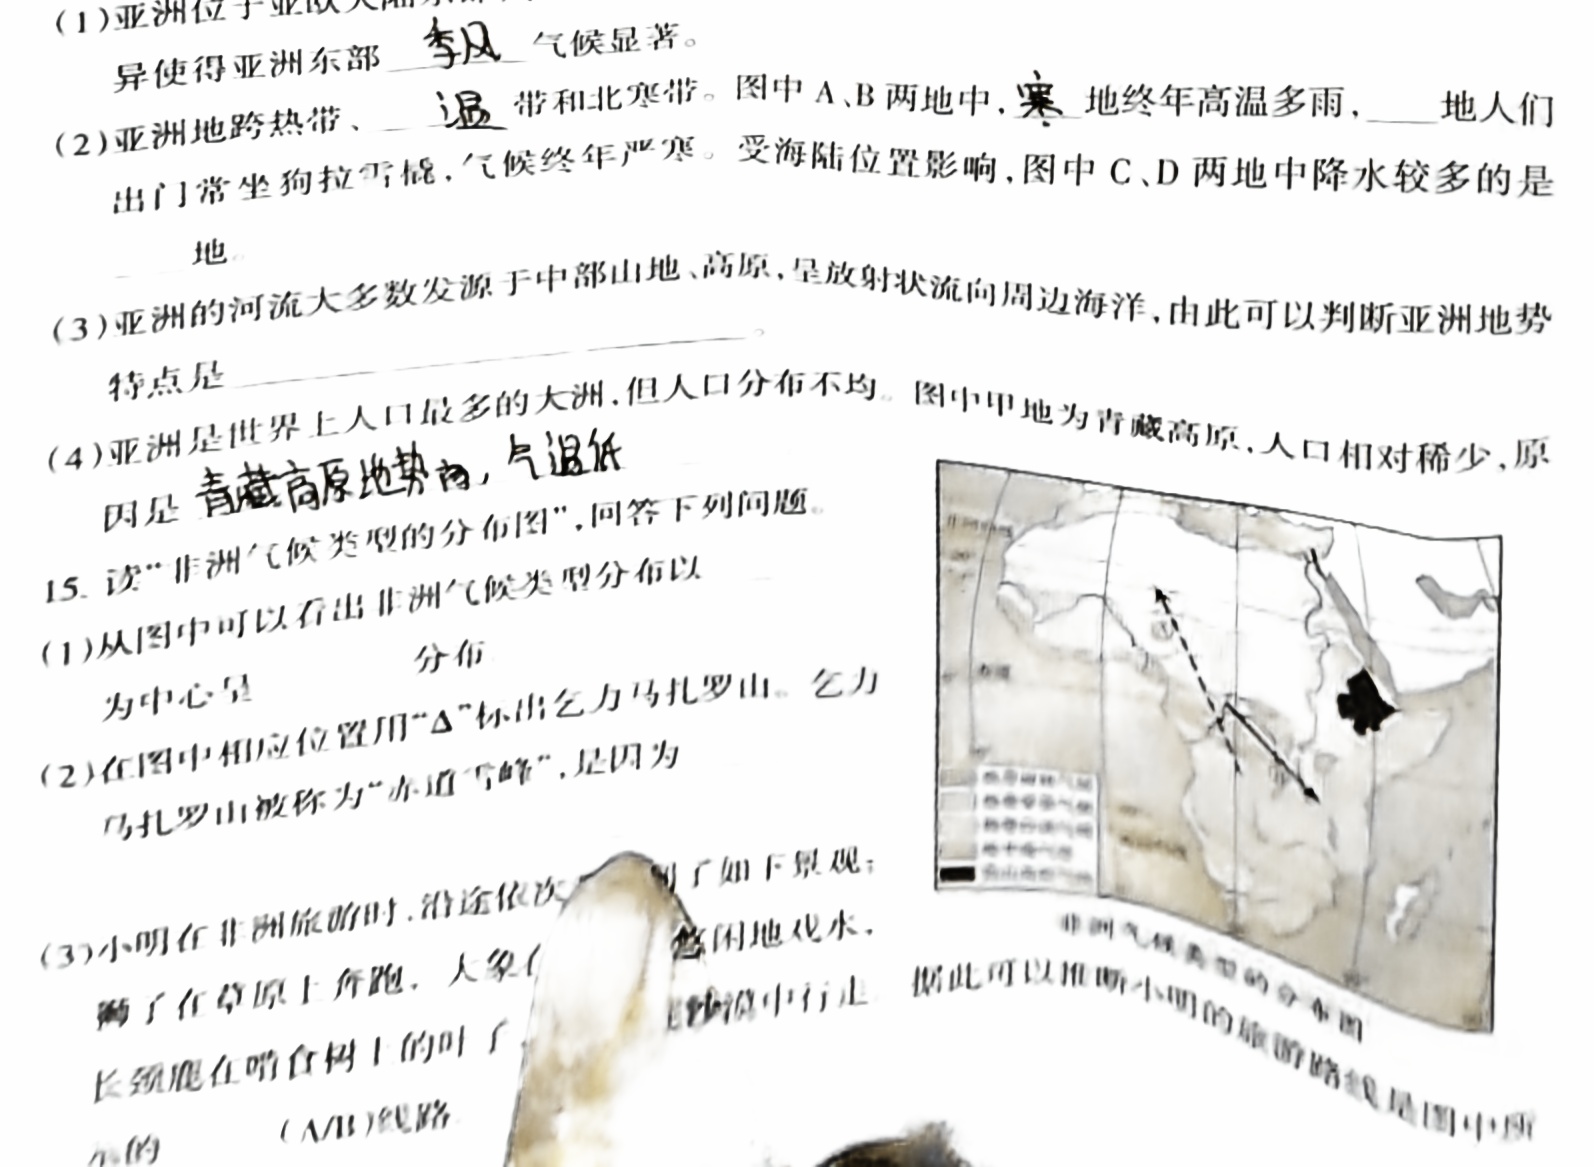 (1)亚洲位于亚欧大陆东部
异使得亚洲东部 季风 气候显著。
(2)亚洲地跨热带、 温 带和北寒带。图中 A、B 两地中, 寒 地终年高温多雨,____地人们
出门常坐狗拉雪橇,气候终年严寒。受海陆位置影响,图中 C、D 两地中降水较多的是
____地。
(3)亚洲的河流大多数发源于中部山地、高原,呈放射状流向周边海洋,由此可以判断亚洲地势
特点是____。
(4)亚洲是世界上人口最多的大洲,但人口分布不均。图中甲地为青藏高原,人口相对稀少,原
因是 青藏高原地势高,气温低
15. 读“非洲气候类型的分布图”,回答下列问题。
(1)从图中可以看出非洲气候类型分布以
为中心呈 分布
(2)在图中相应位置用“Δ”标出乞力马扎罗山。乞力
马扎罗山被称为“赤道雪峰”,是因为
(3)小明在非洲旅游时,沿途依次 了如下景观:
狮子在草原上奔跑,大象 悠闲地戏水,
长颈鹿在啃食树上的叶子, 沙漠中行走 据此可以推断小明的旅游路线是图中所
示的 (A/B)线路
赤道
非洲气候类型的分布图